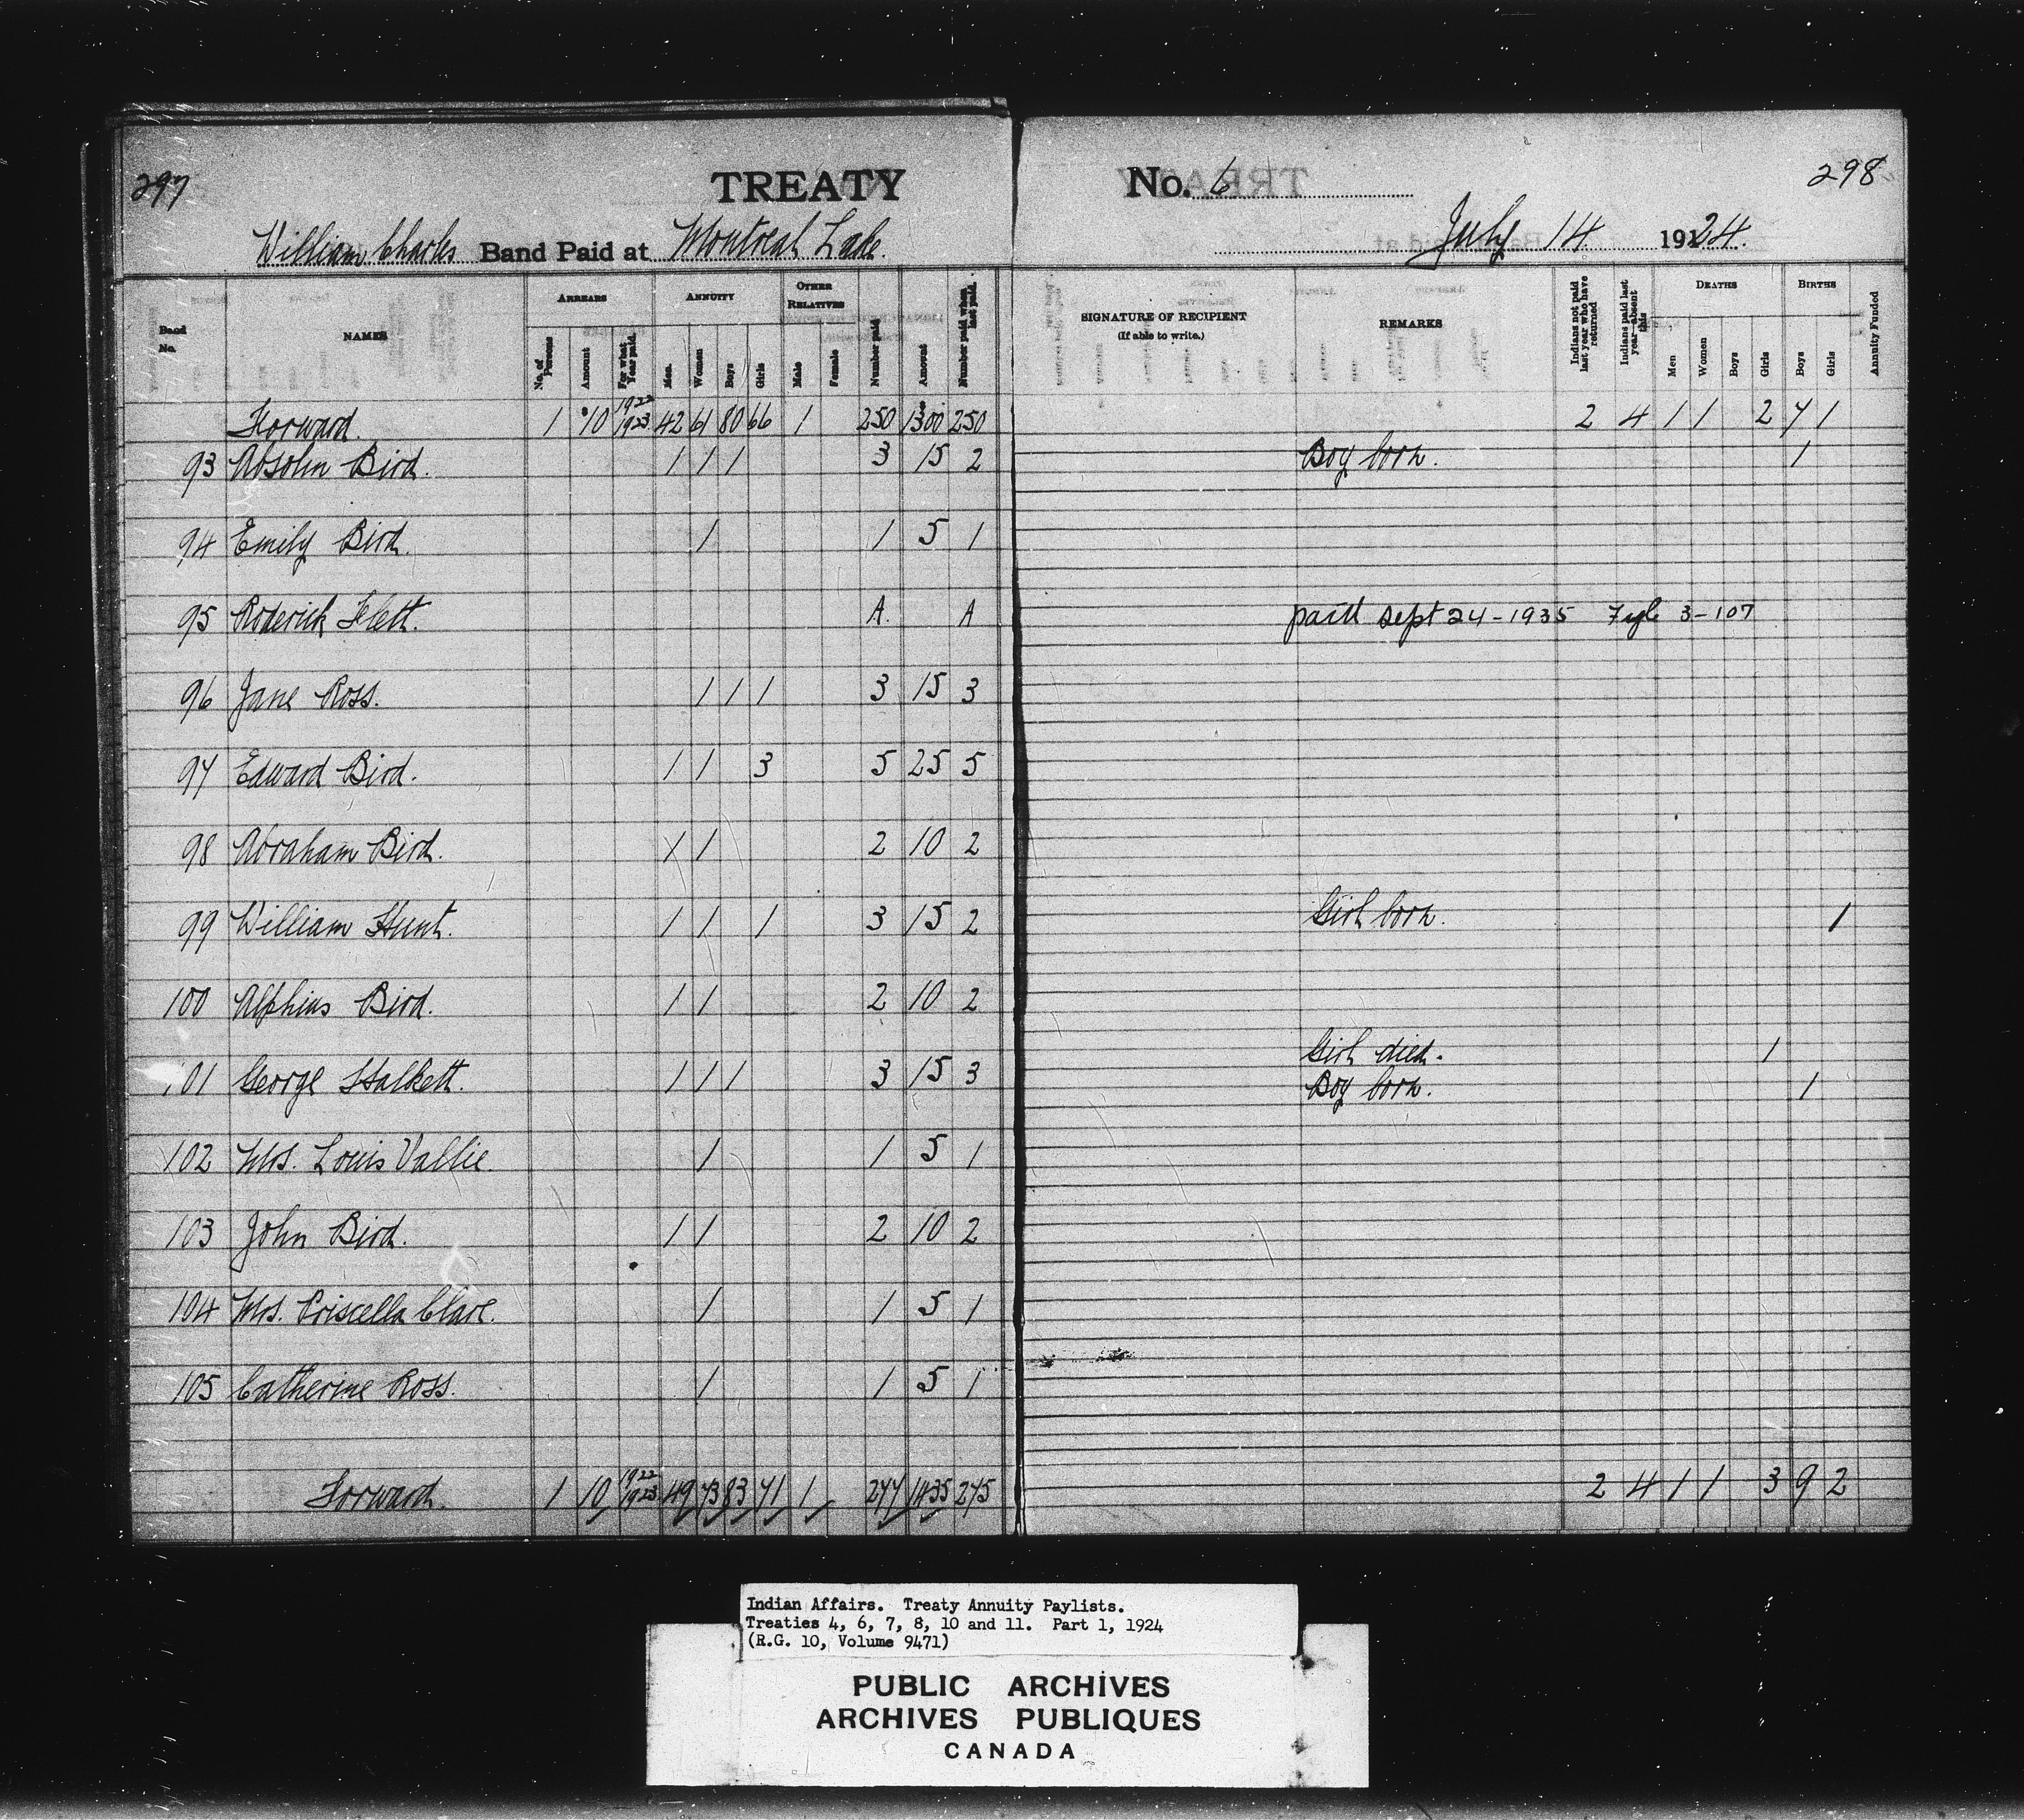 297 TREATY No. 6 298
William Charles Band Paid at Montreal Lake. July 14 1924.
Band No. NAMES ARREARS No. of Persons Amount For what Year paid. ANNUITY Men. Women Boys Girls OTHER RELATIVES Male Female Number paid Amount Number paid when last paid. SIGNATURE OF RECIPIENT (If able to write.) REMARKS Indians not paid last year who have returned Indians paid last year—absent this DEATHS Men Women Boys Girls BIRTHS Boys Girls Annuity Funded
Forward. 1 10 1922 1923 42 61 80 66 1 250 1300 250 2 4 1 1 2 7 1
93 Absolm Bird. 1 1 1 3 15 2 Boy born. 1
94 Emily Bird. 1 1 5 1
95 Roderick Flett. A. A paid Sept 24-1935 Fyle 3-107
96 Jane Ross. 1 1 1 3 15 3
97 Edward Bird. 1 1 3 5 25 5
98 Abraham Bird. 1 1 2 10 2
99 William Hunt. 1 1 1 3 15 2 Girl born. 1
100 Alphius Bird. 1 1 2 10 2
Girl died. 1
101 George Halkett. 1 1 1 3 15 3 Boy born. 1
102 Mrs. Louis Vallie. 1 1 5 1
103 John Bird. 1 1 2 10 2
104 Mrs. Priscella Clare. 1 1 5 1
105 Catherine Ross. 1 1 5 1
Forward. 1 10 1922 1923 49 73 83 71 1 277 1435 275 2 4 1 1 3 9 2
Indian Affairs. Treaty Annuity Paylists.
Treaties 4, 6, 7, 8, 10 and 11. Part 1, 1924
(R.G. 10, Volume 9471)
PUBLIC ARCHIVES
ARCHIVES PUBLIQUES
CANADA